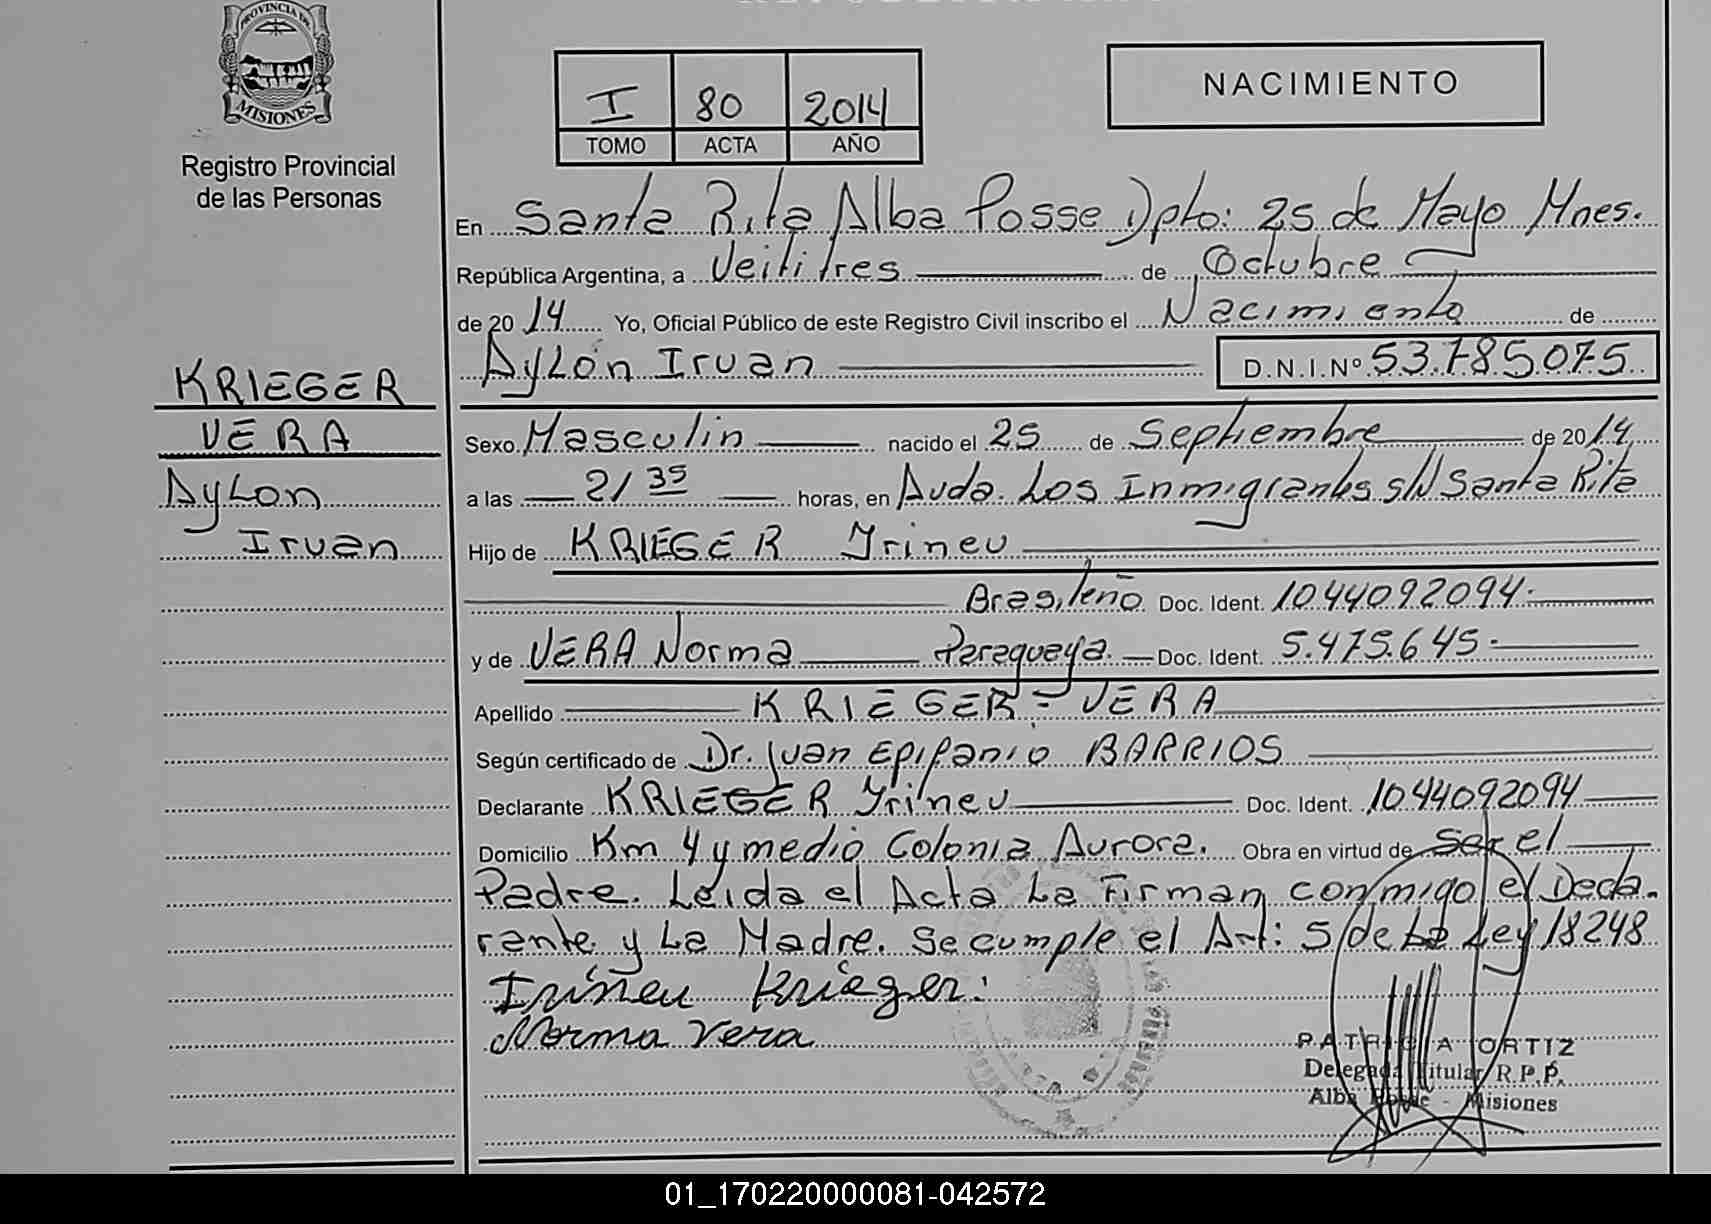 PROVINCIA DE
MISIONES
Registro Provincial
de las Personas
I 80 2014
TOMO ACTA AÑO
NACIMIENTO
En Santa Rita Alba Posse Dpto: 25 de Mayo Mnes.
República Argentina, a Veititres de Octubre
de 2014 Yo, Oficial Público de este Registro Civil inscribo el Nacimiento de
Aylón Iruan D.N.I.Nº 53.785.075
KRIEGER
VERA
Aylon
Iruan
Sexo Masculin nacido el 25 de Septiembre de 2014
a las 21 35 horas, en Avda. Los Inmigrantes s/N Santa Rita
Hijo de KRIEGER Yrineu
Brasileño Doc. Ident. 1044092094.
y de VERA Norma Paraguaya. Doc. Ident. 5.475.645
Apellido KRIEGER - VERA
Según certificado de Dr. Juan Epifanio BARRIOS
Declarante KRIEGER Yrineu Doc. Ident. 1044092094
Domicilio Km 4 y medio Colonia Aurora. Obra en virtud de ser el
Padre. Leida el Acta La Firman conmigo el Decla.
rante y La Madre. Se cumple el Art: 5 de La Ley 18248
Irineu Krieger.
Norma Vera
PATRICIA ORTIZ
Delegada Titular R.P.P.
Alba Posse - Misiones
01_170220000081-042572